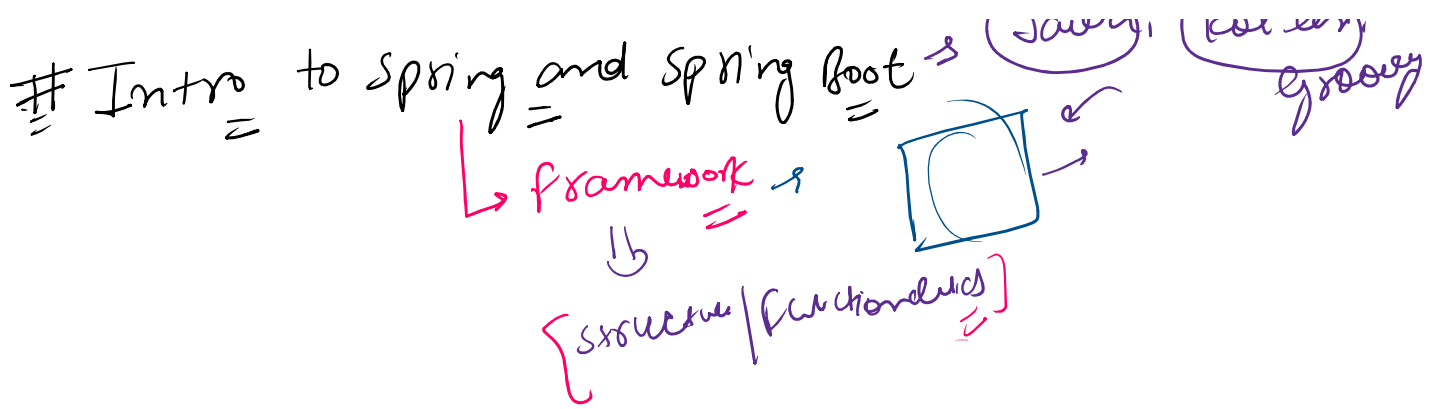 # Intro to Spring and Spring Boot → Java, Kotlin,
Groovy
framework
structure/functionalities